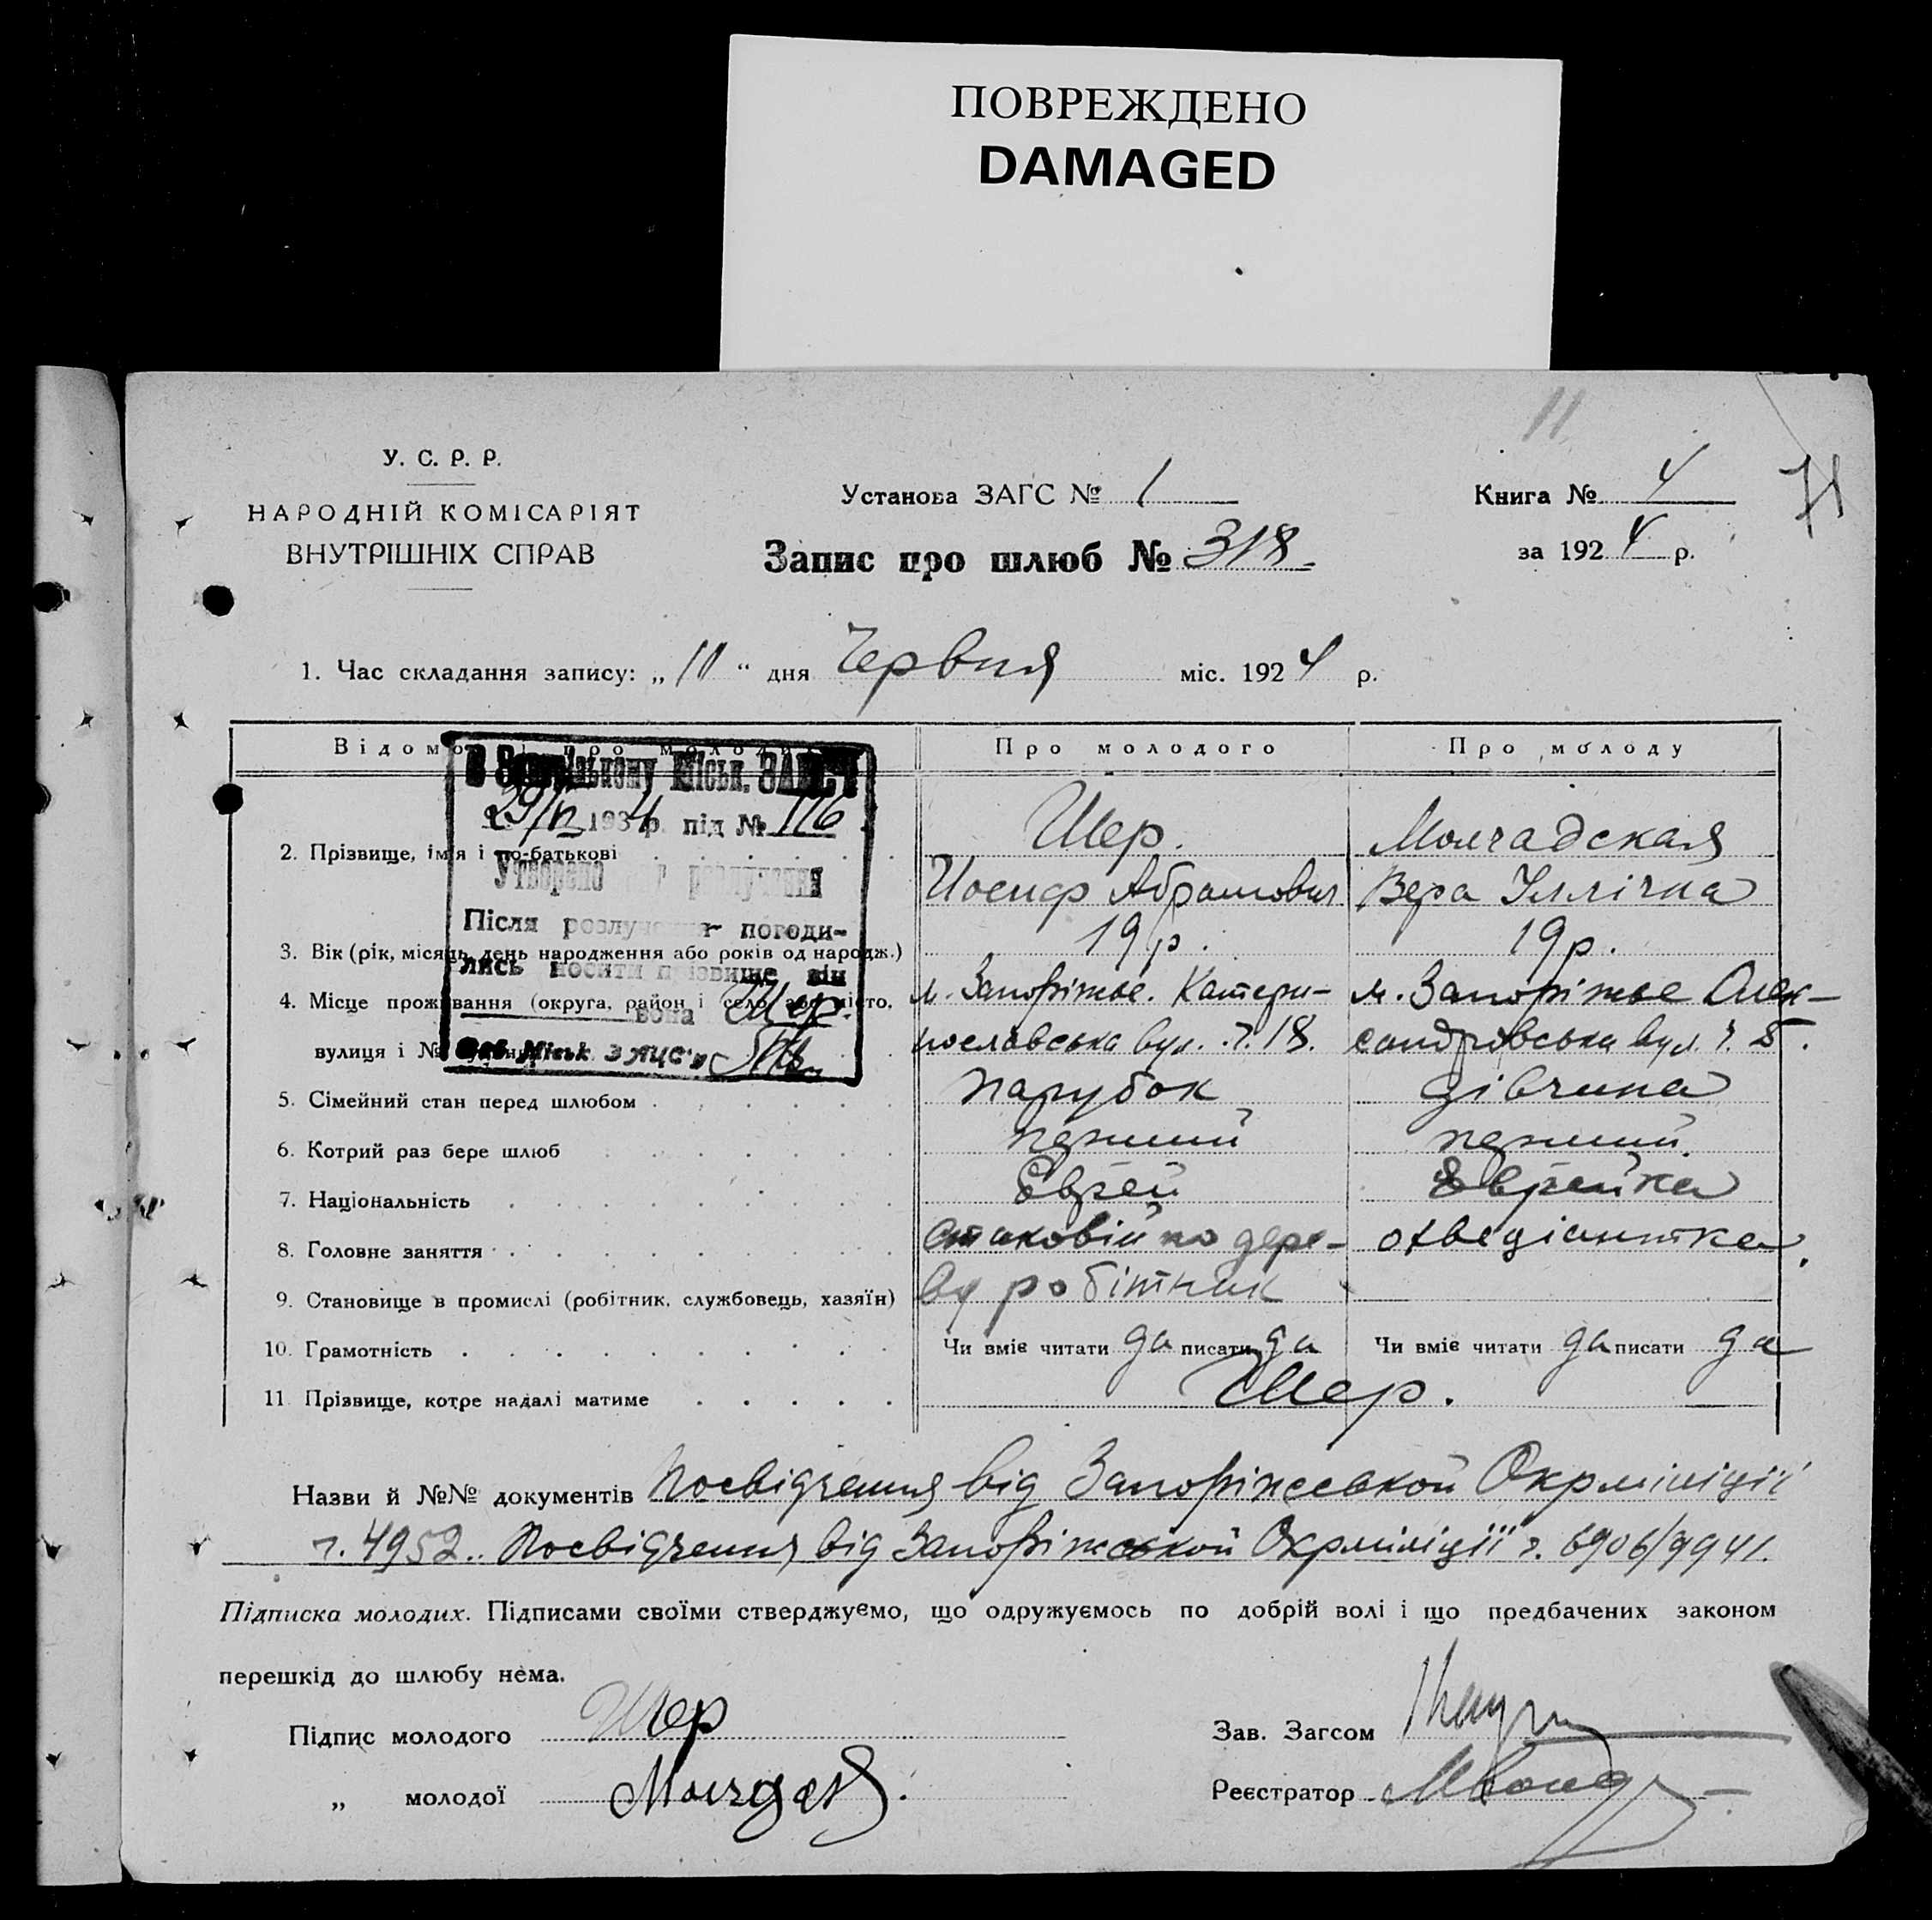 ПОВРЕЖДЕНО
DAMAGED
11
У. С. Р. Р.
НАРОДНІЙ КОМІСАРІЯТ
ВНУТРІШНІХ СПРАВ
Установа ЗАГС № 1
Запис про шлюб № 318.
Книга № 4
за 1924 р.
1. Час складання запису: „ 10 “ дня Червня міс. 1924 р.
Про молодого
Про молоду
29/IV 1934 р. під № 116
Утворено
Після погоди-
лись носити він
вона Шер.
2. Прізвище, імя і по-батькові
Шер.
Иосиф Абрамович
Молчадская
Вера Іллічна
3. Вік (рік, місяць, день народження або років од народж.)
19 р.
19 р.
4. Місце проживання (округа, район і село, або місто,
вулиця і №
м. Запоріжье. Катери-
нославська вул. ч. 18.
м. Запоріжье Олек-
сандровська вул. ч. 5.
5. Сімейний стан перед шлюбом
парубок
дівчина
6. Котрий раз бере шлюб
перший
перший
7. Національність
Єврей
Єврейка
8. Головне заняття
по дере-
9. Становище в промислі (робітник, службовець, хазяїн)
ву робітник
10. Грамотність
Чи вміє читати да писати да
Чи вміє читати да писати да
11 Прізвище, котре надалі матиме
Шер.
Назви й №№ документів Посвідчення від Запоріжської Окрміліції
ч. 4952. Посвідчення від Запоріжської Окрміліції ч. 6906/9941.
Підписка молодих. Підписами своїми стверджуємо, що одружуємось по добрій волі і що предбачених законом
перешкід до шлюбу нема.
Підпис молодого Шер
„ молодої
Зав. Загсом
Реєстратор